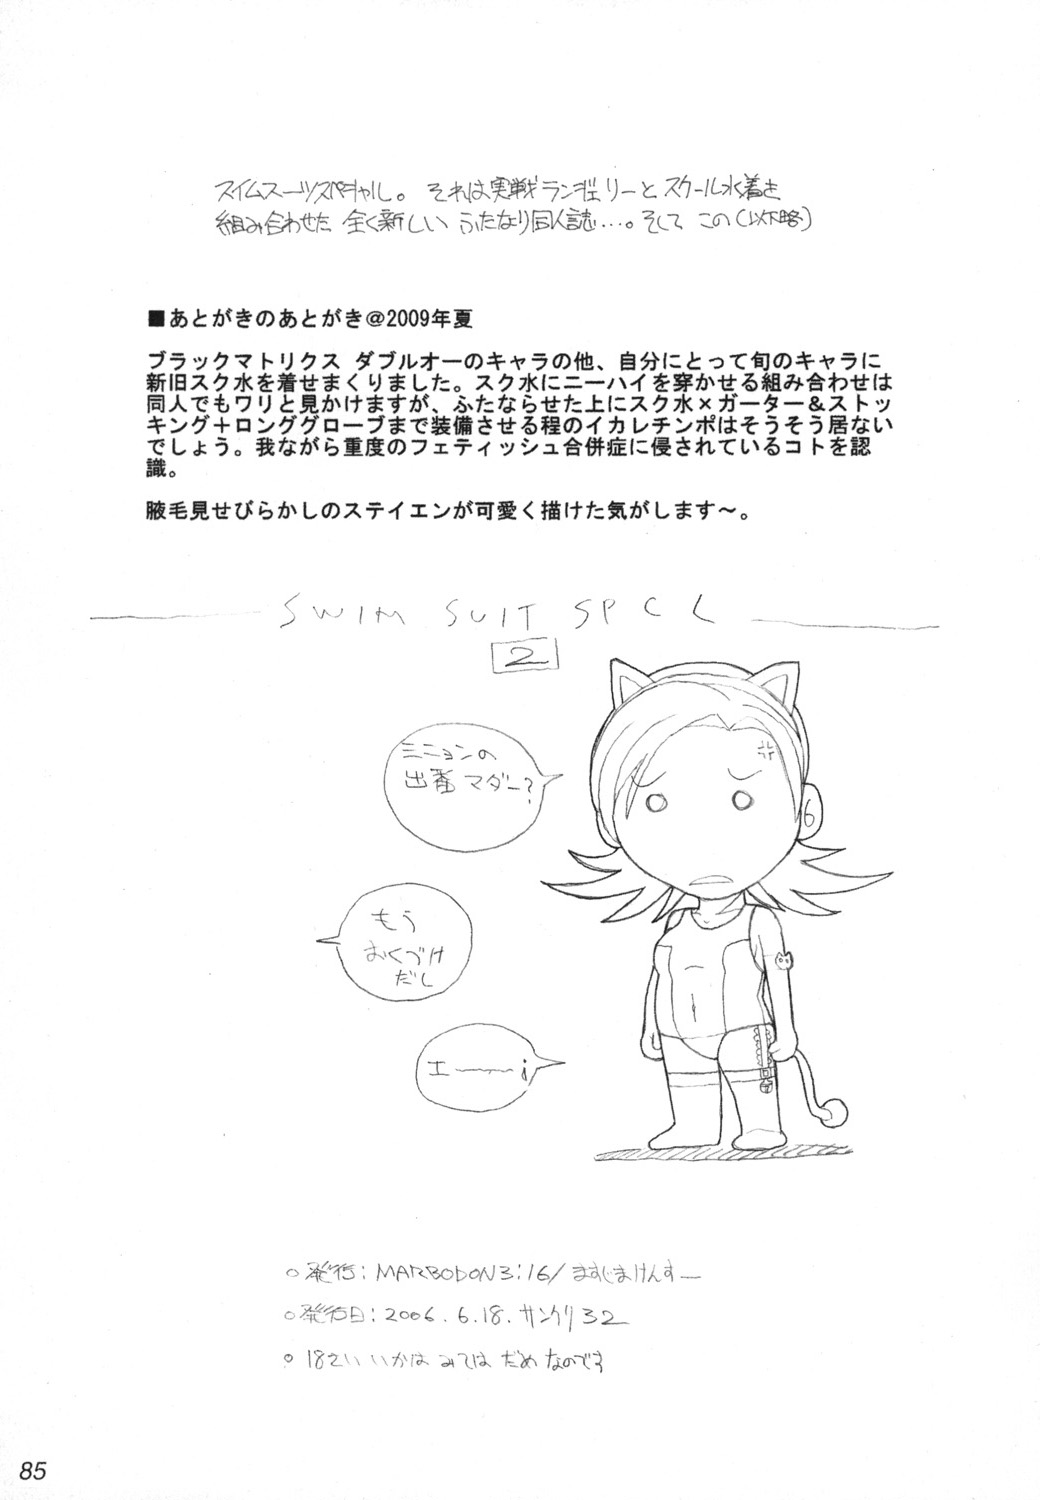 スイムスーツスペシャル。それは実戦ランジェリーとスクール水着を
組み合わせた 全く新しい ふたなり同人誌…。そして この(以下略)
■あとがきのあとがき@2009年夏
ブラックマトリクス ダブルオーのキャラの他、自分にとって旬のキャラに
新旧スク水を着せまくりました。スク水にニーハイを穿かせる組み合わせは
同人でもワリと見かけますが、ふたならせた上にスク水×ガーター&ストッ
キング+ロンググローブまで装備させる程のイカレチンポはそうそう居ない
でしょう。我ながら重度のフェティッシュ合併症に侵されているコトを認
識。
腋毛見せびらかしのステイエンが可愛く描けた気がします~。
SWIM SUIT SPCL
2
ミニョンの
出番マダー?
もう
おくづけ
だし
エ――¡
○発行:MARBODON3:16/ますじまけんすー
○発行日:2006.6.18.サンクリ32
○18さい いかは みては だめ なのです
85